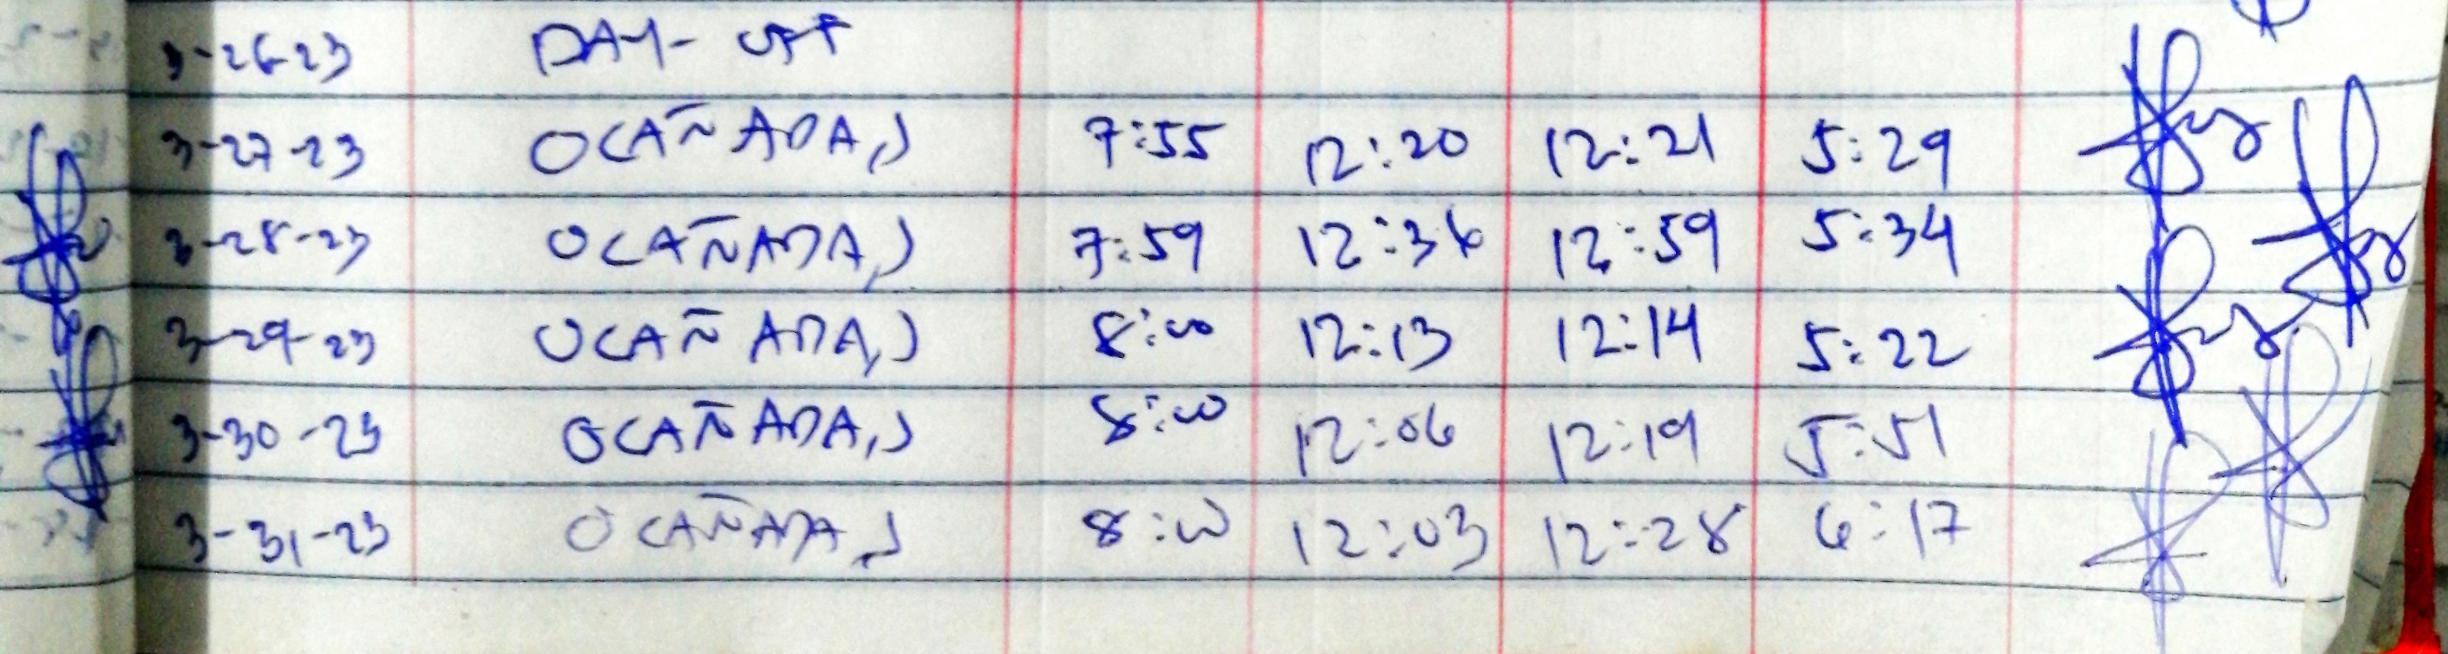 3-26-23 DAY-OFF
3-27-23 OCAÑADA, J 7:55 12:20 12:21 5:29
3-28-23 OCAÑADA, J 7:59 12:36 12:59 5:34
3-29-23 OCAÑADA, J 8:00 12:13 12:14 5:22
3-30-23 OCAÑADA, J 8:00 12:06 12:19 5:51
3-31-23 OCAÑADA, J 8:00 12:03 12:28 6:17